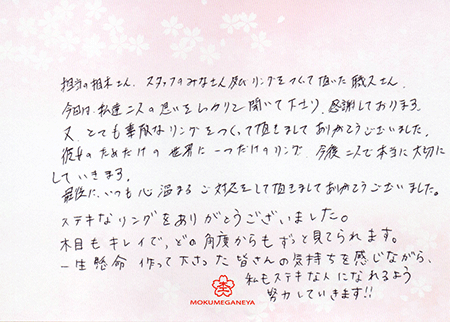 担当の相木さん、スタッフのみなさん及びリングをつくって頂いた職人さん、
今回は、私達二人の思いをしっかりと聞いて下さり、感謝しております。
又、とても素敵なリングをつくって頂きましてありがとうございました。
彼女のためだけの世界に一つだけのリング、今後二人で本当に大切に
していきます。
最後に、いつも心温まるご対応をして頂きましてありがとうございました。
ステキなリングをありがとうございました。
木目もキレイで、どの角度からもずっと見てられます。
一生懸命作って下さった皆さんの気持ちを感じながら、
私もステキな人になれるよう
努力していきます!!
MOKUMEGANEYA